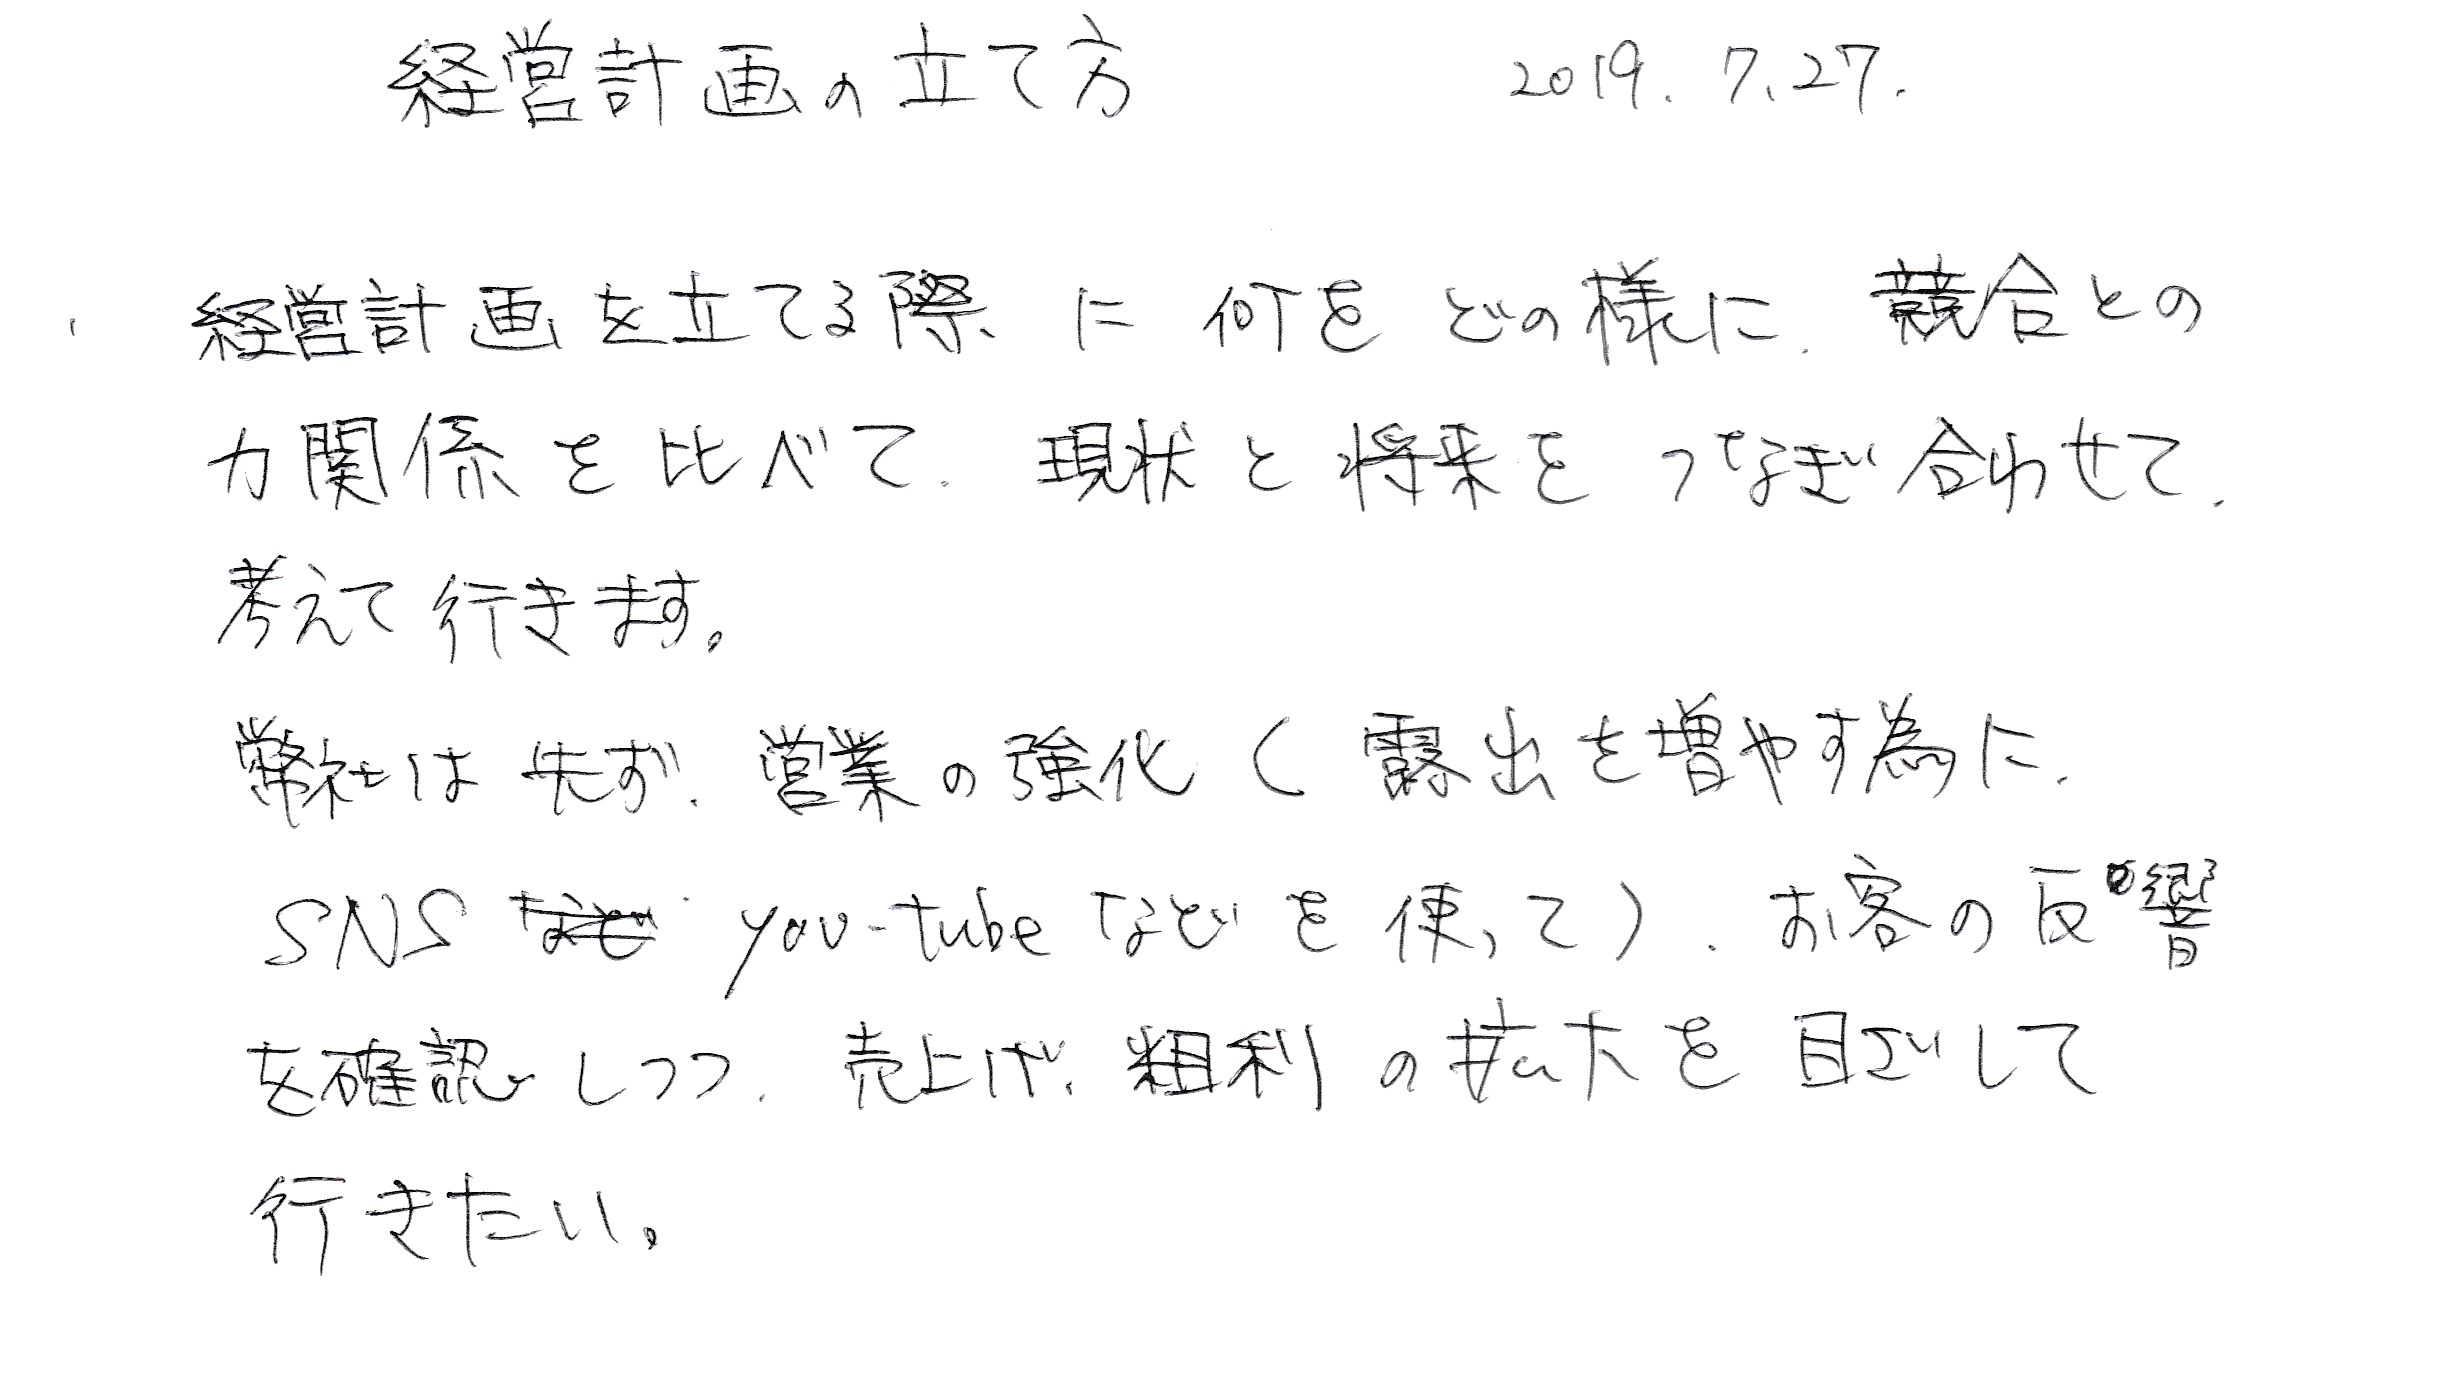 経営計画の立て方 2019.7.27.
経営計画を立てる際、に何をどの様に、競合との
力関係を比べて、現状と将来をつなぎ合わせて、
考えて行きます。
弊社は先ず、営業の強化(露出を増やす為に、
SNS など you-tubeなどを使って)、お客の反響
を確認しつつ、売上げ、粗利の拡大を目ざして
行きたい。